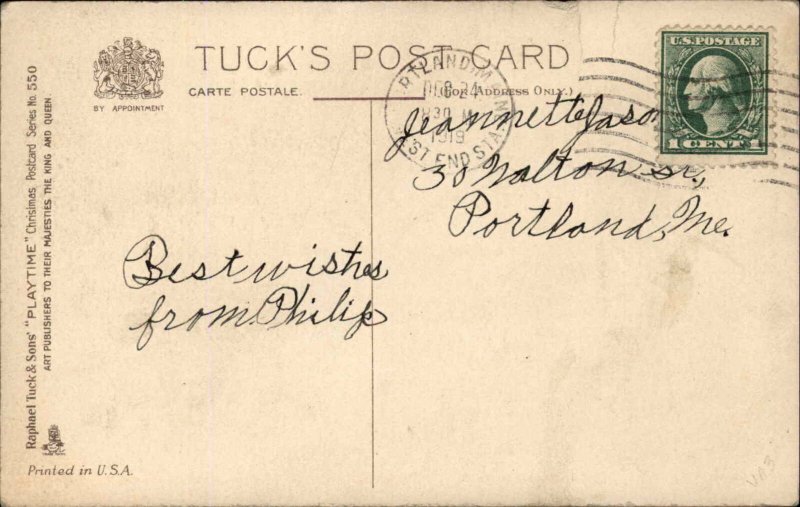 TUCK'S POST CARD
CARTE POSTALE.
(FOR ADDRESS ONLY.)
BY APPOINTMENT
Raphael Tuck & Sons' "PLAYTIME" Christmas Postcard Series No. 550
ART PUBLISHERS TO THEIR MAJESTIES THE KING AND QUEEN
Printed in U.S.A.
DEC 24
1919
END STA.
U.S. POSTAGE
1 CENT 1
Jeannette Jason
30 Walton St.,
Portland, Me.
Best wishes
from Philip